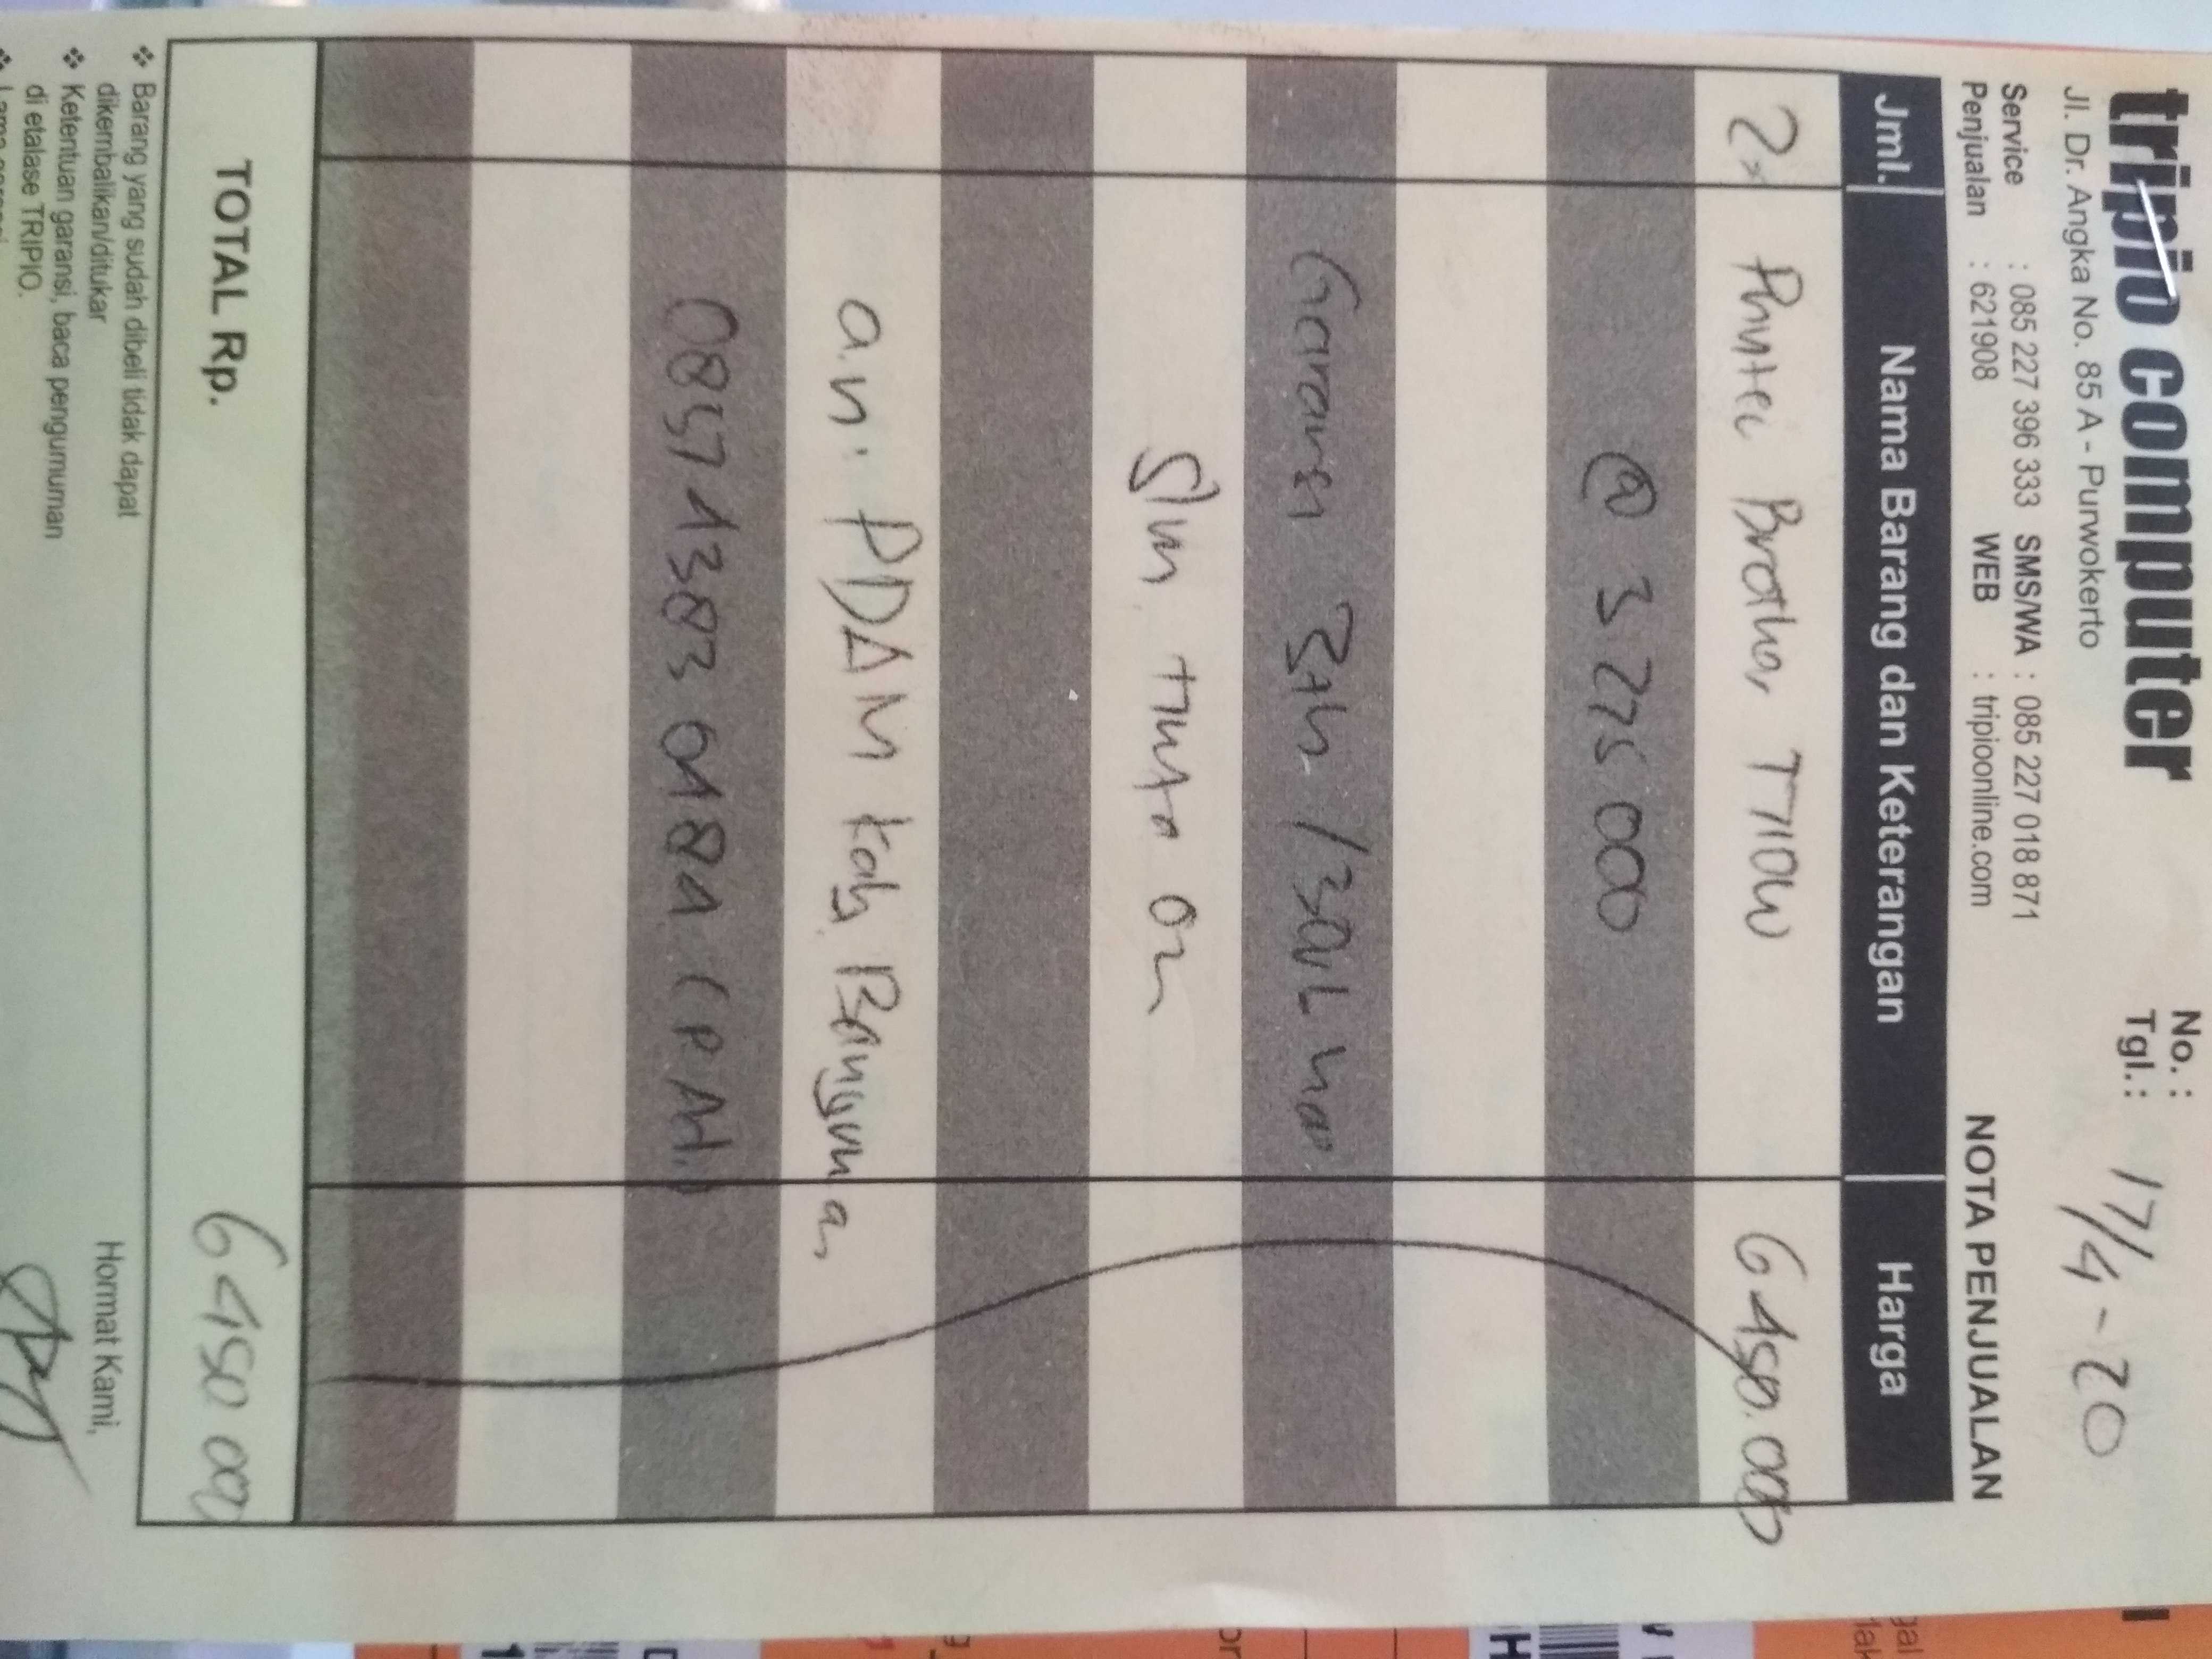 tripio computer
No. :
Jl. Dr. Angka No. 85 A - Purwokerto
Tgl. : 17/4-20
Service : 085 227 396 333 SMS/WA : 085 227 018 871
Penjualan : 621908 WEB : tripioonline.com
NOTA PENJUALAN
Jml. Nama Barang dan Keterangan Harga
2x Printer Brother T710W 6450.000
@ 3.225.000
Garansi 3th /30
Tinta Ori
a.n. PDAM Kab. Banyumas
TOTAL Rp. 6450.000
❖ Barang yang sudah dibeli tidak dapat
dikembalikan/ditukar
❖ Ketentuan garansi, baca pengumuman
di etalase TRIPIO.
Hormat Kami,